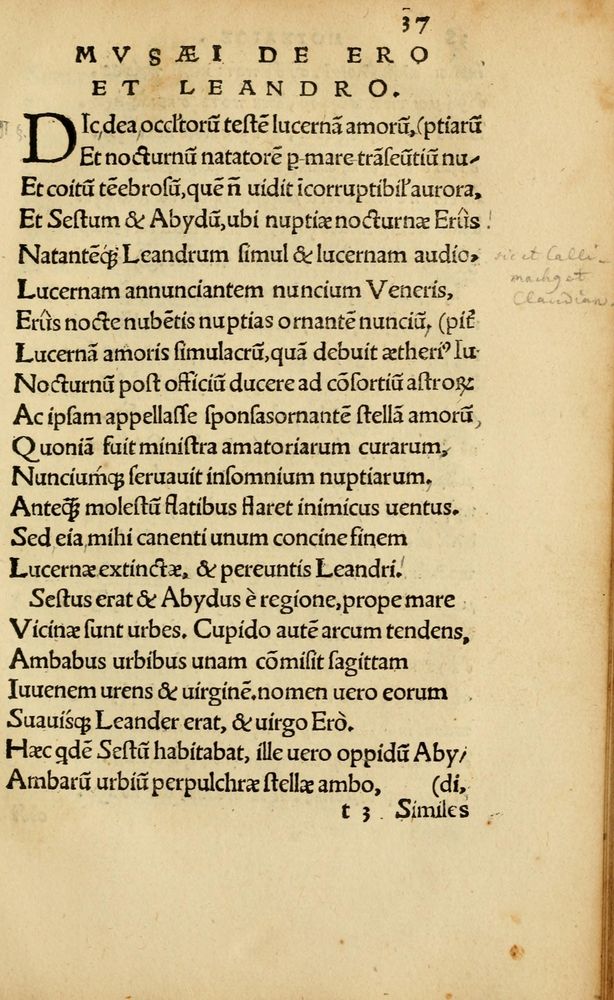 37
MVSÆI DE ERO
ET LEANDRO.
DIc, dea, occultorũ testẽ lucernã amorũ, (ptiarũ
Et nocturnũ natatorẽ ꝑ mare trãseũtiũ nu-
Et coitũ tẽebrosũ, quẽ ñ uidit ĩcorruptibil' aurora,
Et Sestum & Abydũ, ubi nuptiæ nocturnæ Erûs
Natantẽq; Leandrum simul & lucernam audio.
Lucernam annunciantem nuncium Veneris,
Erûs nocte nubẽtis nuptias ornantẽ nunciũ, (pit̃
Lucernã amoris simulacrũ, quã debuit ætheriꝰ Iu-
Nocturnũ post officiũ ducere ad cõsortiũ astroꝝ:
Ac ipsam appellasse sponsasornantẽ stellã amorũ,
Quoniã fuit ministra amatoriarum curarum,
Nunciumq; seruauit insomnium nuptiarum.
Anteq̃ molestũ flatibus flaret inimicus uentus.
Sed eia mihi canenti unum concine finem
Lucernæ extinctæ, & pereuntis Leandri.
Sestus erat & Abydus è regione, prope mare
Vicinæ sunt urbes. Cupido autẽ arcum tendens,
Ambabus urbibus unam cõmisit sagittam
Iuuenem urens & uirginẽ. nomen uero eorum
Suauisq; Leander erat, & uirgo Erò.
Hæc qdẽ Sestũ habitabat, ille uero oppidũ Aby/
Ambarũ urbiũ perpulchræ stellæ ambo, (di,
t 3 Similes
sic et Calli-
machus et
Claudian.